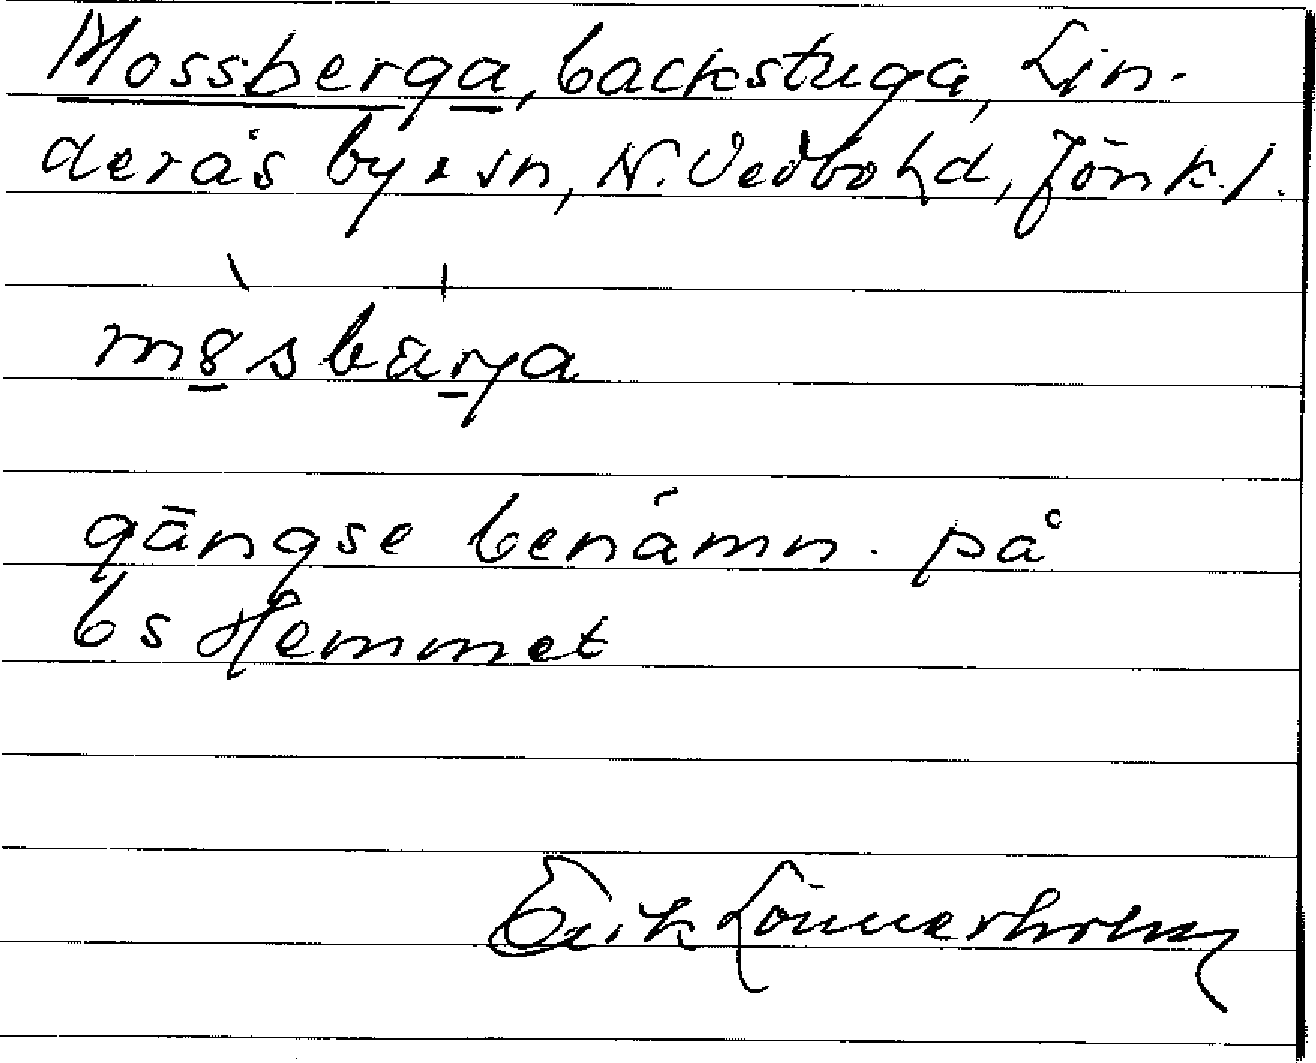 Mossberga, backstuga, Lin-
derås by & sn, N. Vedbo hd, Jönk. l.
m8sbärja
gängse benämn. på
bs Hemmet
Erik Lönnerholm